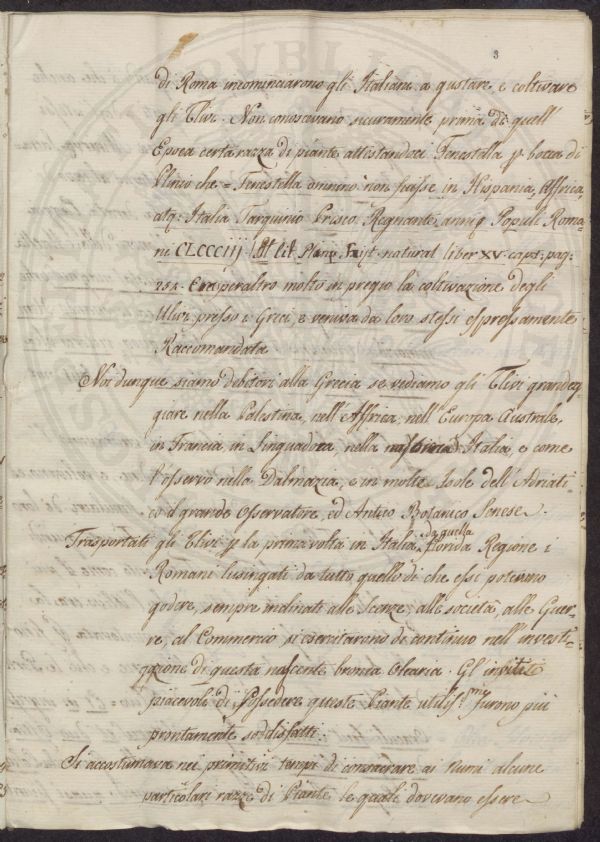 3
di Roma incominciarono gl' Italiani a gustare, e coltivare
gli Ulivi. Non conoscevano sicuramente prima di quell'
Epoca certa razza di piante attestandoci Fenestella p bocca di
Plinio che = Fenestella omnino non fuisse in Hispania, Affrica,
atq: Italia Tarquinio Prisco Regnante annis Populi Roma=
ni CLCCCIIJ lit Plang. Hist. natural liber XV. capt: pag:
252. Era peraltro molto in pregio la coltivazione degli
Ulivi presso i Greci, e veniva da loro stessi espressamente
Raccomandata
Noi dunque siamo debitori alla Grecia se vediamo gli Ulivi grandeg
giare nella Palestina, nell' Affrica, nell' Europa Australe,
in Francia, in Linguadoca, nella Italia, e come
l' osservò nella Dalmazia, e in molte Isole dell' Adriati=
co il grande Osservatore, ed Antico Botanico Senese.
Trasportati gli Ulivi p la prima volta in Italia da quella florida Regione i
Romani lusingati da tutto quello di che essi potevano
godere, sempre inclinati alle Scenze, alle società, alle Guer=
re, al Commercio si esercitarono di continuo nell' investi=
gazione di questa nascente bronia Olearia. Gl' inviti
piacevoli di possedere queste Piante utiliss.me furono più
prontamente soddisfatti.
Si accostumava nei primitivi tempi di consacrare ai Numi alcune
particolari razze di Piante le quali dovevano essere